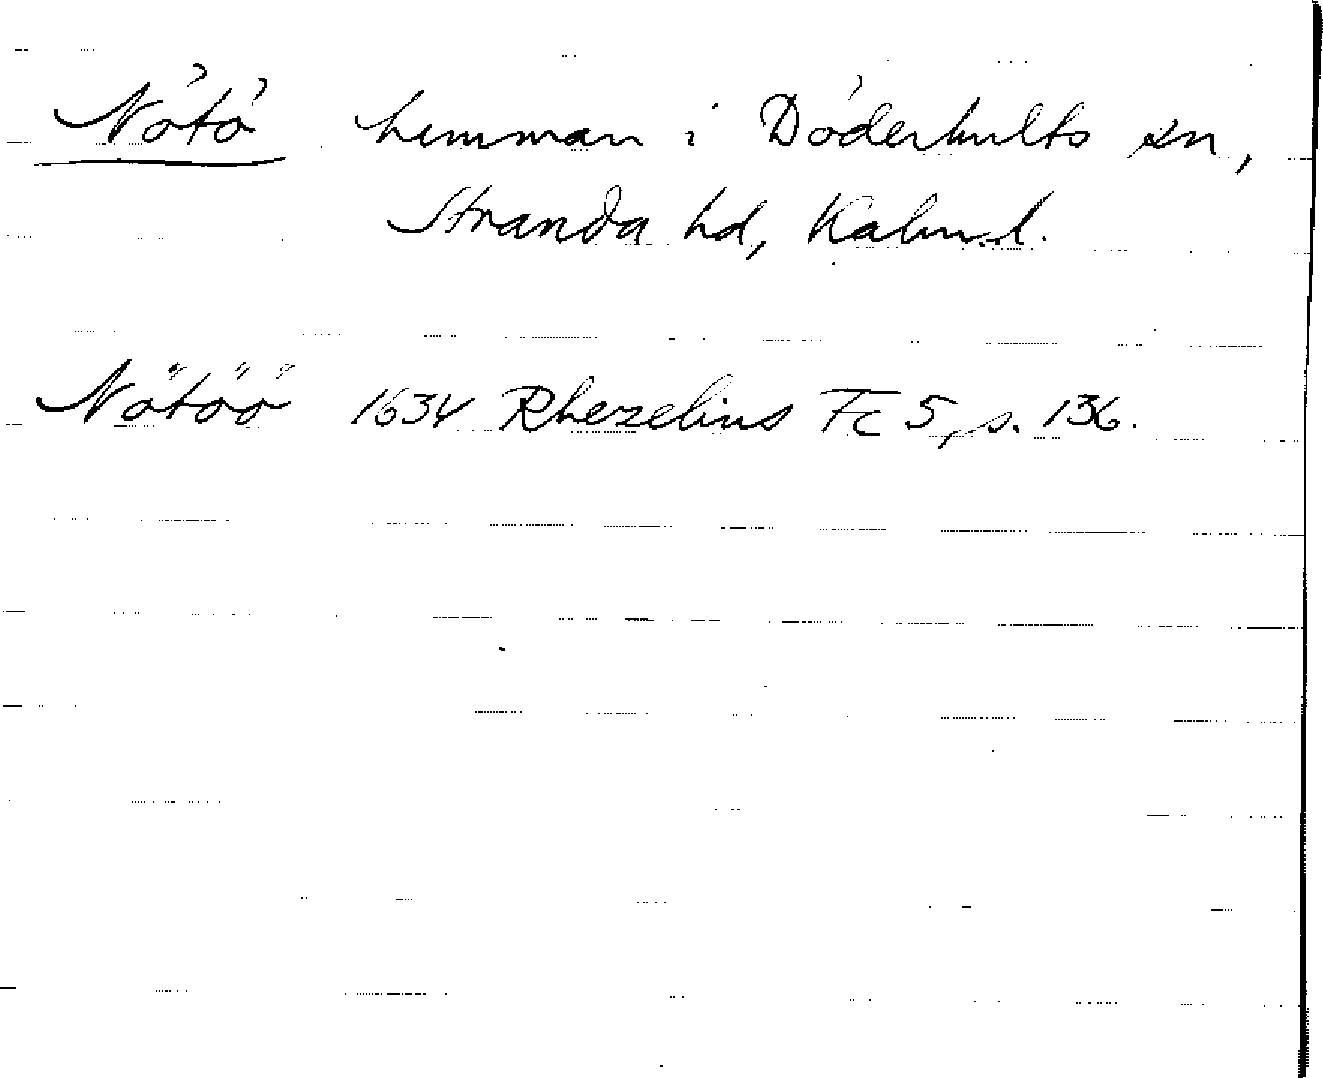 Nötö hemman i Döderhults sn,
Stranda hd, Kalm. l.
Nötöö 1634 Rhezelius Fc 5, s. 136.